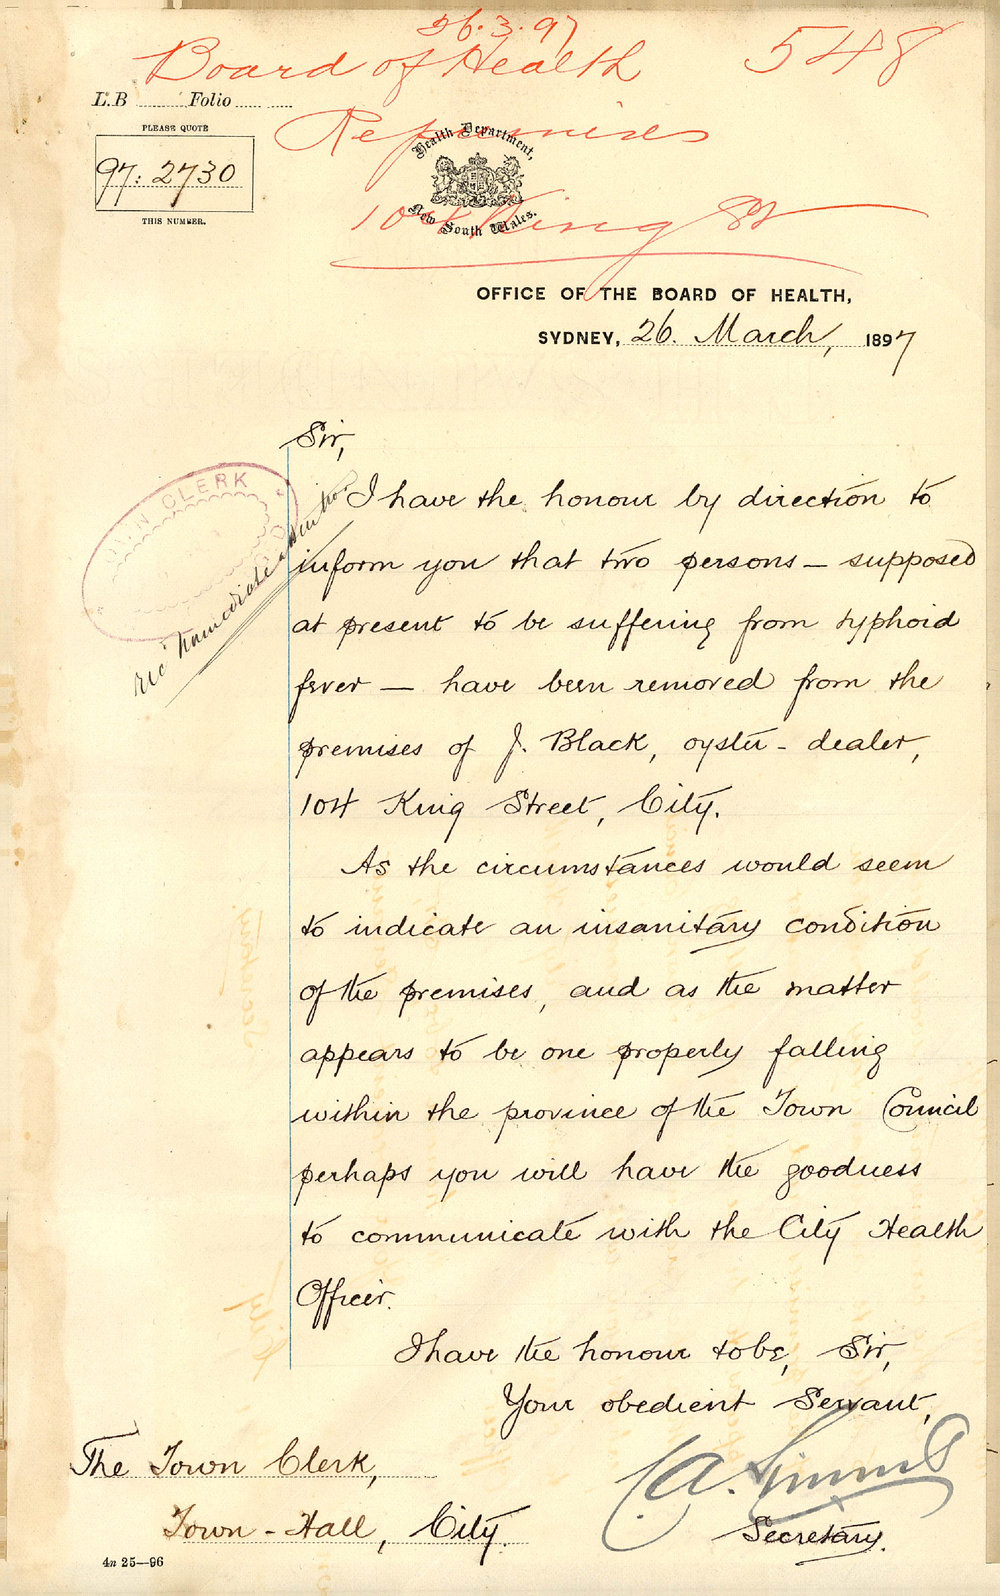 26.3.97
Board of Health 548
L.B Folio
PLEASE QUOTE
97: 2730
THIS NUMBER.
Re premises
Health Department,
New South Wales.
104 King St
OFFICE OF THE BOARD OF HEALTH,
SYDNEY, 26. March, 1897
Sir,
I have the honour by direction to
inform you that two persons — supposed
at present to be suffering from typhoid
fever — have been removed from the
premises of J. Black, oyster-dealer,
104 King Street, City.
As the circumstances would seem
to indicate an insanitary condition
of the premises, and as the matter
appears to be one properly falling
within the province of the Town Council
perhaps you will have the goodness
to communicate with the City Health
Officer.
I have the honour to be, Sir,
Your obedient Servant,
Secretary.
The Town Clerk,
Town-Hall, City.
4n 25—96
CLERK